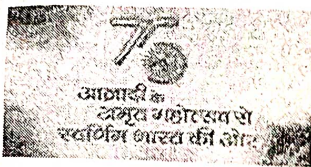 75
आज़ादी के
अमृत महोत्सव से
स्वर्णिम भारत की ओर